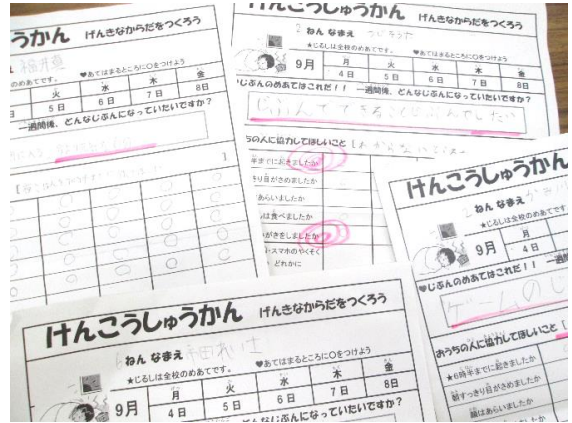 うかん げんきなからだをつくろう
のめあてです。 ♥あてはまるところに○をつけよう
火 水 木 金
5日 6日 7日 8日
一週間後、どんなじぶんになっていたいですか？
けんこうしゅうかん げんきなからだをつくろう
2 ねん なまえ
★じるしは全校のめあてです。 ♥あてはまるところに○をつけよう
9月 月 火 水 木 金
4日 5日 6日 7日 8日
じぶんのめあてはこれだ！！ 一週間後、どんなじぶんになっていたいですか？
じぶんでできることはじぶんでしたい
うちの人に協力してほしいこと【
半までに起きましたか
きり目がさめましたか
あらいましたか
は食べましたか
がきをしましたか
・スマホのやくそく
どれかに
けんこうしゅうかん
2 ねん なまえ
★じるしは全校のめあてです。
9月 月
4日
♥じぶんのめあてはこれだ！！ 一週
ゲームのじ
おうちの人に協力してほしいこと【
★6時半までに起きましたか
朝すっきり目がさめましたか
顔はあらいましたか
けんこうしゅうかん げんきなからだをつくろう
6 ねん なまえ
★じるしは全校のめあてです。 ♥あてはまるところに○をつけよう
9月 月 火 水 木 金
4日 5日 6日 7日 8日
んなじぶんになっていたいですか？